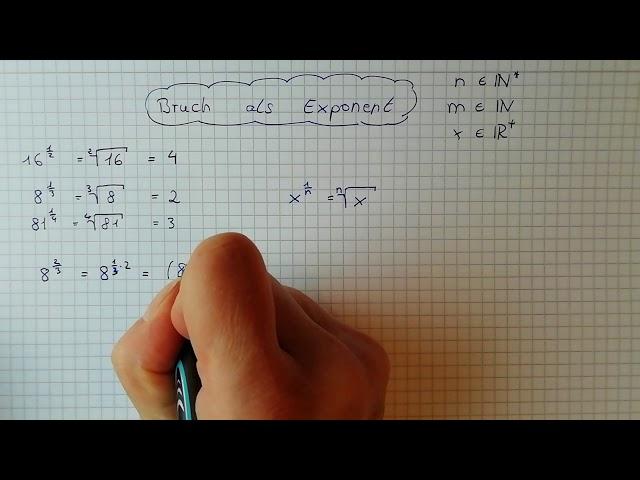 Bruch als Exponent
n ∈ ℕ*
m ∈ ℕ
x ∈ ℝ⁺
16^(1/2) = ²√16 = 4
8^(1/3) = ³√8 = 2
81^(1/4) = ⁴√81 = 3
x^(1/n) = ⁿ√x
8^(2/3) = 8^(1/3 · 2) = (8